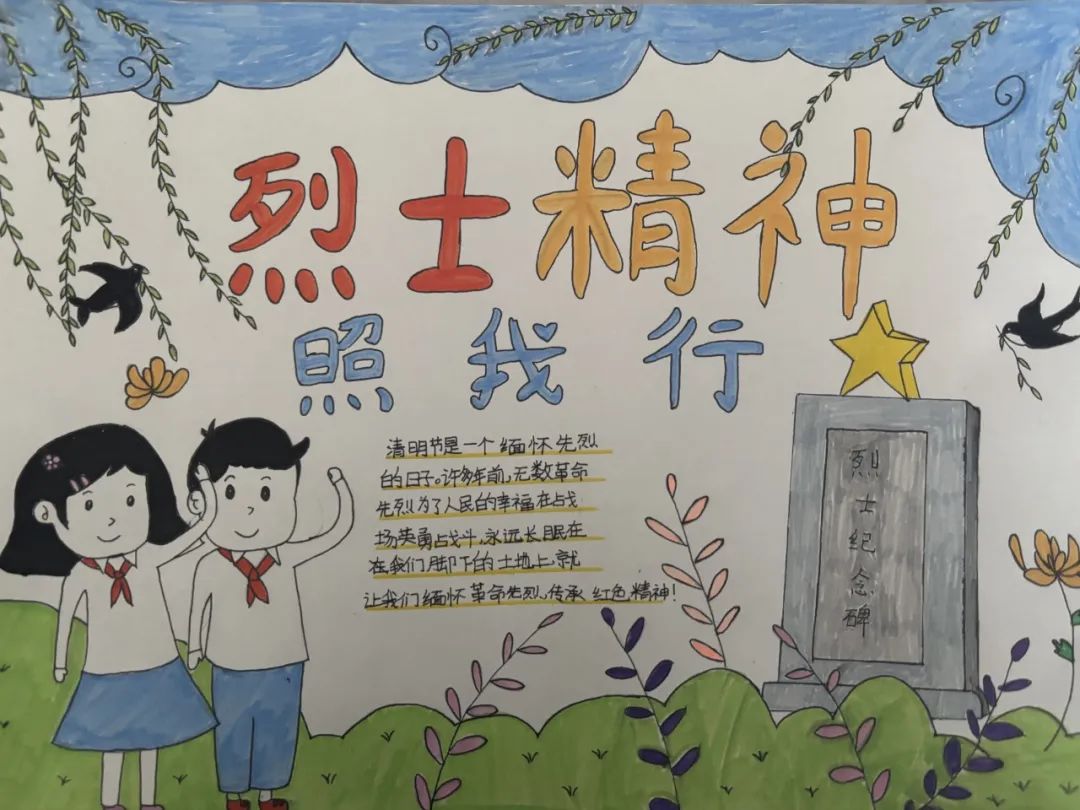 烈士精神
照我行
清明节是一个缅怀先烈
的日子。许多年前，无数革命
先烈为了人民的幸福在战
场英勇战斗，永远长眠在
在我们脚下的土地上，就
让我们缅怀革命先烈，传承红色精神！
烈士纪念碑